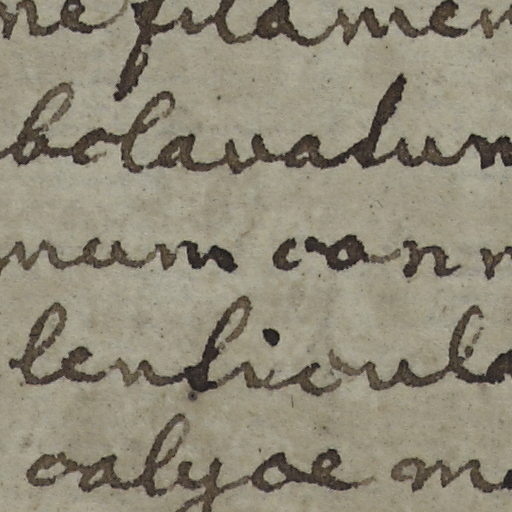 ne filamen
bclavatum
neum cann
lenticula
calyce m